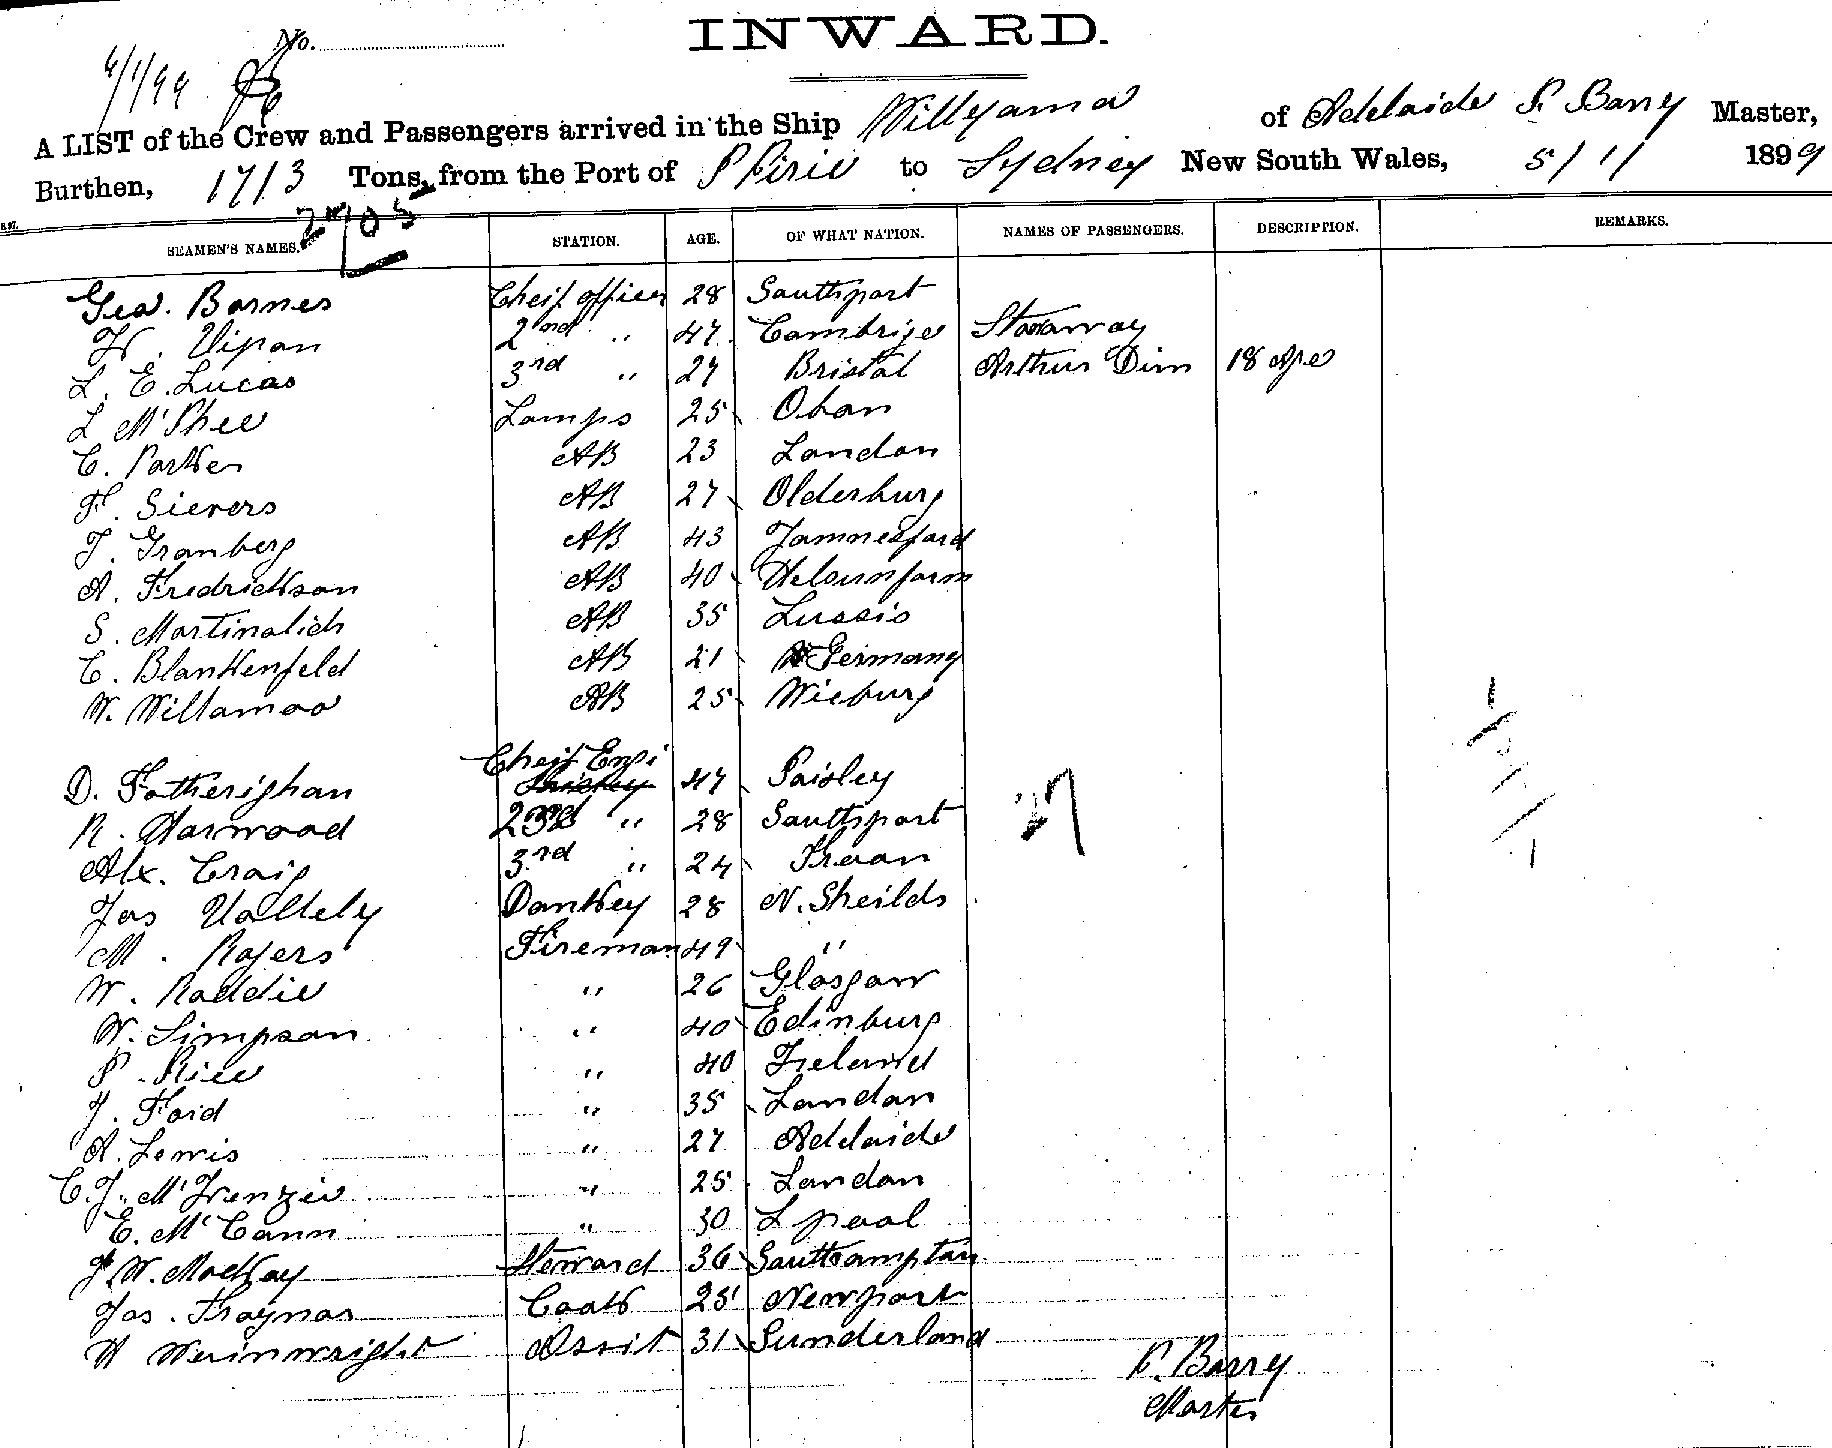 INWARD.
No.
6/1/99
A LIST of the Crew and Passengers arrived in the Ship Willyama of Adelaide P. Barry Master,
Burthen, 1713 Tons, from the Port of P Pirie to Sydney New South Wales, 5/1/ 1899
2705
SEAMEN'S NAMES. STATION. AGE. OF WHAT NATION. NAMES OF PASSENGERS. DESCRIPTION. REMARKS.
Geo. Barnes Cheif officer 28 Southport
H. Vipan 2nd " 47 Cambrige Stowaway
L. E. Lucas 3rd " 27 Bristol Arthur Dim 18 Age
L McPhee Lamps 25 Oban
C. Parker AB 23 London
F. Sievers AB 27 Olderburg
J. Granberg AB 43 Jamnesford
A. Fredrickson AB 40 Helsunform
S. Martinolich AB 35 Lussis
C. Blankenfeld AB 21 Germany
W. Willamoo AB 25 Wieburg
D. Fotherighan Cheif Engi 47 Paisley
R. Harwood 2nd " 28 Southport
Alx. Craig 3rd " 24 Troon
Jas Vallely Donkey 28 N. Sheilds
M. Rogers Fireman 49 "
W. Roddie " 26 Glasgow
W. Simpson " 40 Edinburg
P. Rice " 40 Ireland
J. Ford " 35 London
A. Lewis " 27 Adelaide
C. J. McKenzie " 25 London
E. McCann " 30 L pool
J. W. MacKay Steward 36 Southampton
Jas. Traynor Cook 25 Newport
H Weinwright Assit 31 Sunderland
27
P. Barry
Master